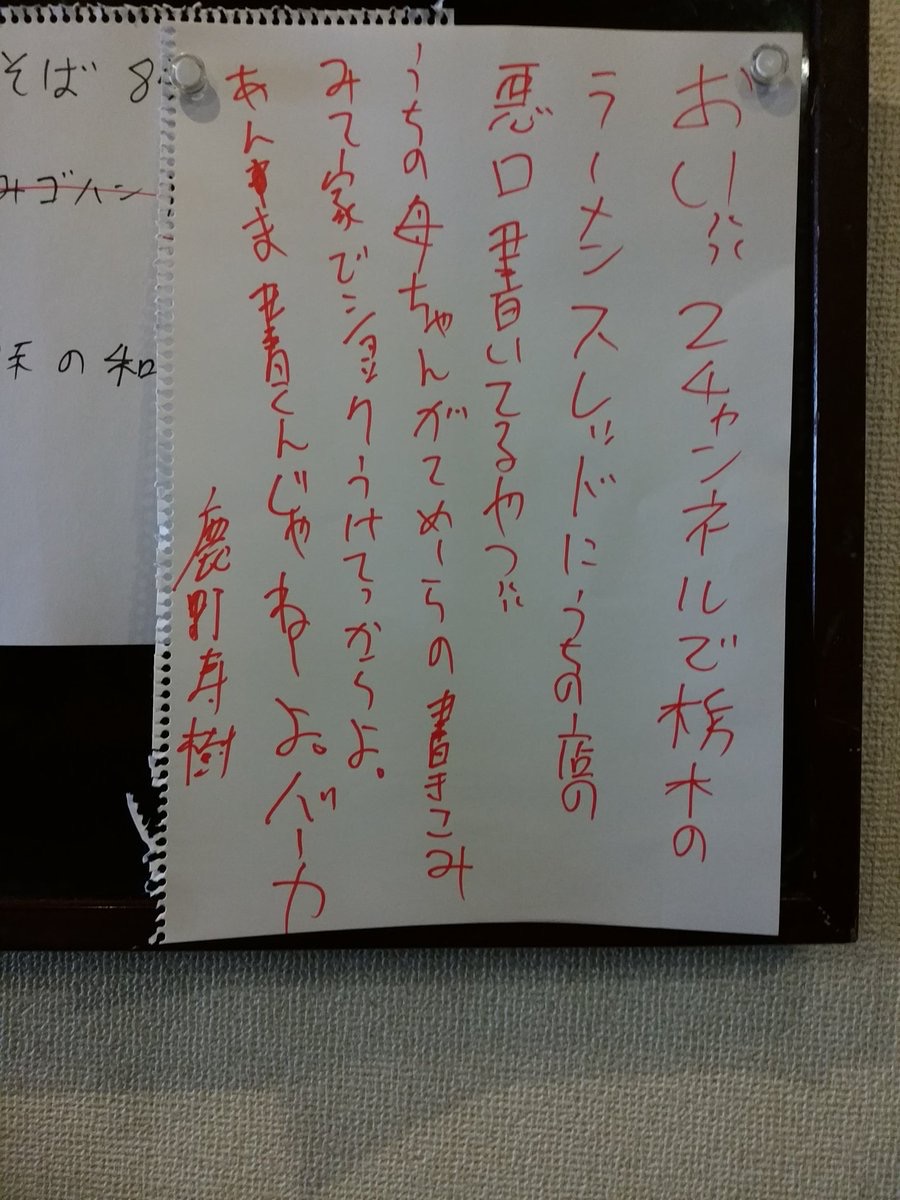 おい!! 2チャンネルで栃木の
ラーメンスレッドにうちの店の
悪口書いてるやつ!!
うちの母ちゃんがてめーらの書きこみ
みて家でショックうけてっからよ。
あんま書くんじゃねーよ。バーカ
鹿野寿樹
そば 8
みゴハン
の和